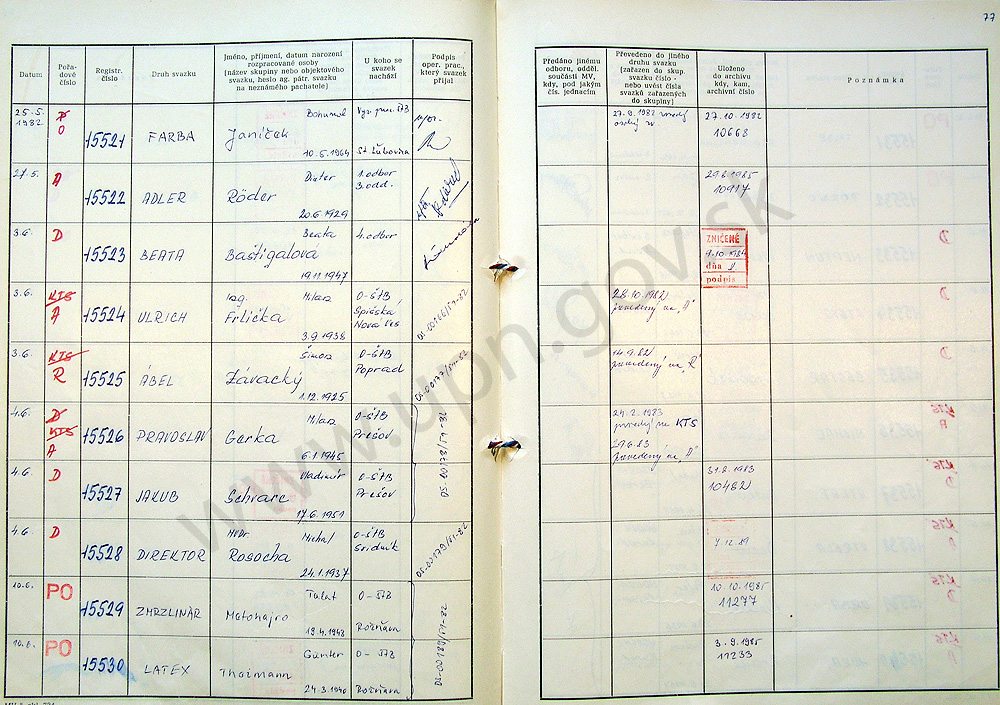 77
Datum
Pořa-
dové
číslo
Registr.
číslo
Druh svazku
Jméno, příjmení, datum narození
rozpracované osoby
(název skupiny nebo objektového
svazku, heslo ag. pátr. svazku
na neznámého pachatele)
U koho se
svazek
nachází
Podpis
oper. prac.,
který svazek
přijal
Předáno jinému
odboru, odděl.
součásti MV,
kdy, pod jakým
čís. jednacím
Převedeno do jiného
druhu svazku
(zařazen do skup.
svazku číslo -
nebo uvést čísla
svazků zařazených
do skupiny)
Uloženo
do archivu
kdy, kam,
archivní číslo
Poznámka
25.5.
1982
O
15521
FARBA
Bohumil
Janíček
10.5.1964
St. Ľubovňa
27.9.1982
27.10.1982
10668
27.5.
A
15522
ADLER
Dieter
Röder
20.6.1929
1.odbor
3.odd.
29.8.1985
10917
3.6.
D
15523
BEATA
Beata
Baštigalová
19.11.1947
4.odbor
ZNIČENÉ
9.10.1984
dňa
podpis
3.6.
KTS
A
15524
ULRICH
Ing. Milan
Frlička
3.9.1938
O-ŠtB
Spišská
Nová Ves
28.10.1982
zavedený na "A"
3.6.
KTS
R
15525
ÁBEL
Šimon
Závacký
1.12.1925
O-ŠtB
Poprad
14.9.82
zavedený na "R"
4.6.
D
KTS
A
15526
PRAVOSLAV
Milan
Gerka
6.1.1945
O-ŠtB
Prešov
24.2.1983
KTS
29.6.83
zavedený na "A"
4.6.
D
15527
JAKUB
Vladimír
Schvarc
17.6.1951
O-ŠtB
Prešov
31.8.1983
10482
4.6.
D
15528
DIREKTOR
MUDr. Michal
Rosocha
24.1.1937
O-ŠtB
Svidník
7.12.89
10.6.
PO
15529
ZMRZLINÁR
Talat
Metohajro
18.4.1948
O-ŠtB
Rožňava
10.10.1985
11277
10.6.
PO
15530
LATEX
Günter
Thoimann
24.3.1940
O-ŠtB
Rožňava
3.9.1985
11233
www.upn.gov.sk